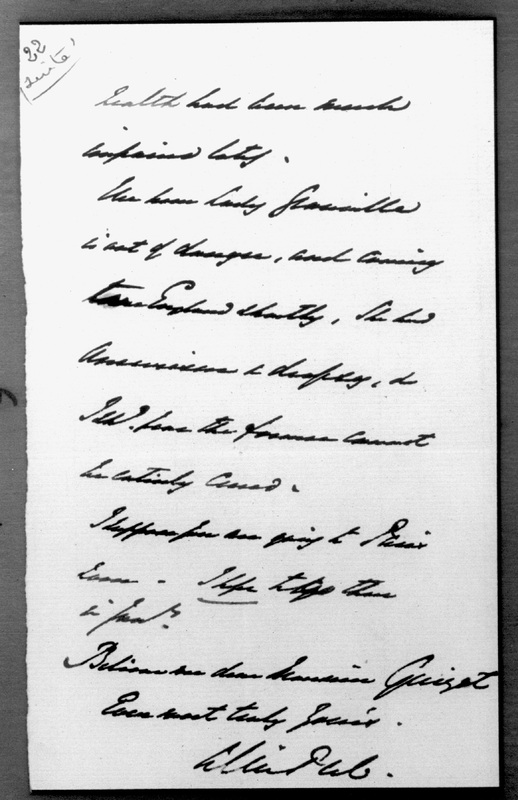 22
(suite)
health had been much
impaired lately.
We hear Lady Granville
is out of danger, and coming
to England shortly, She had
Aneurism & dropsy, &
I shd. fear the former cannot
be entirely cured.
I suppose you are going to Paris
soon - I hope to go there
in Jany.
Believe me dear Monsieur Guizot
Ever most truly yours.